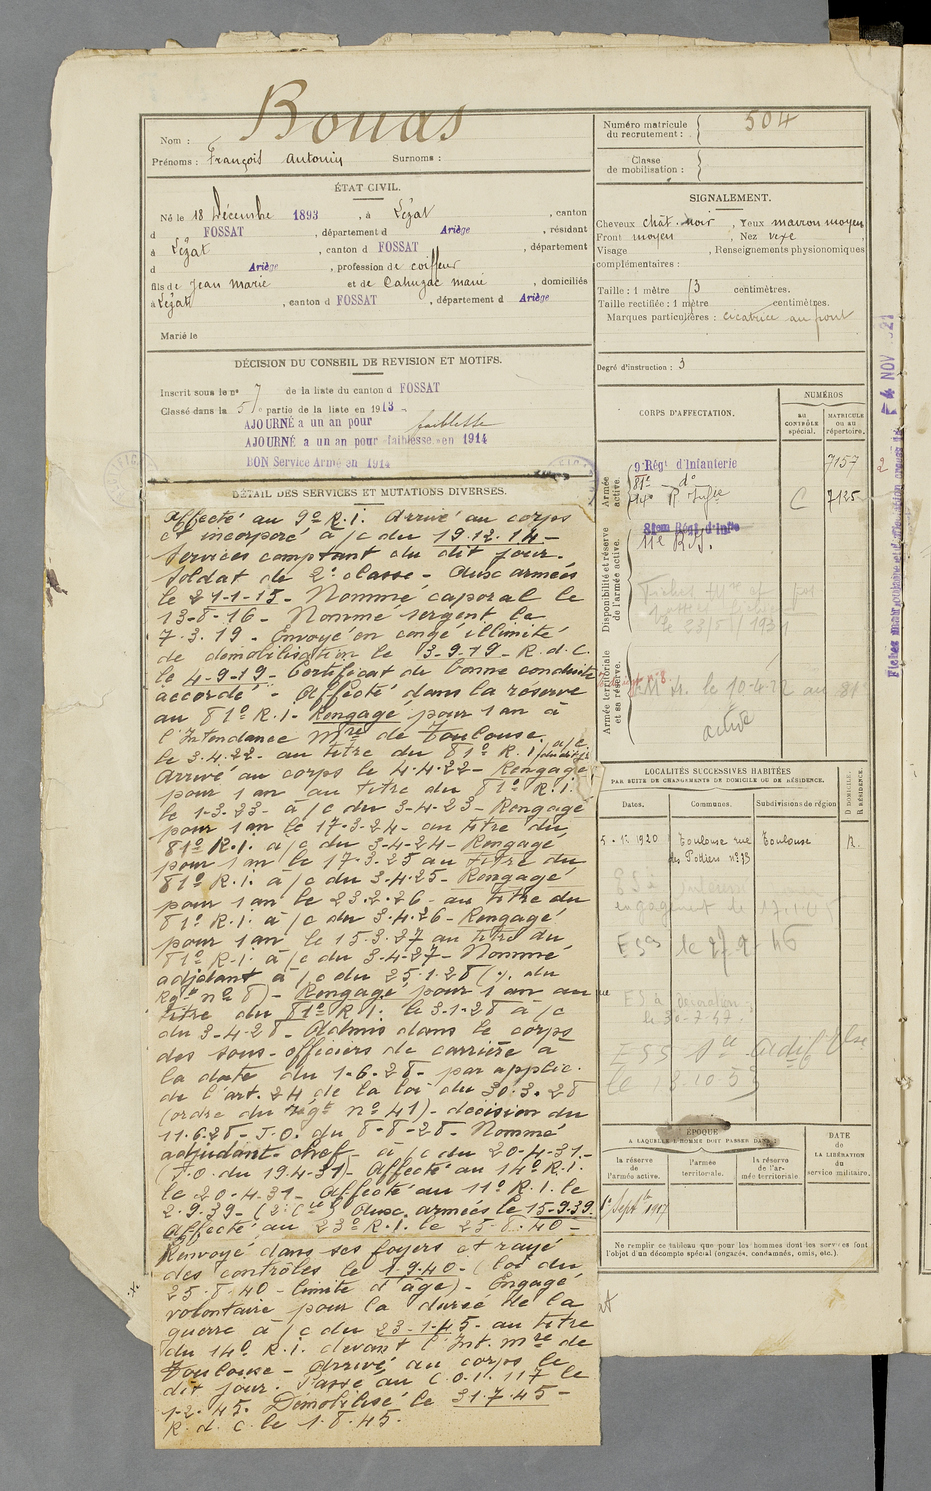 Nom : Bouas
Prénoms : François Antonin Surnoms :
ÉTAT CIVIL.
Né le 18 Décembre 1893, à Lézat, canton
d FOSSAT, département d Ariège, résidant
à Lézat, canton d FOSSAT, département
d Ariège, profession de coiffeur
fils de Jean Marie et de Cahuzac Marie, domiciliés
à Lézat, canton d FOSSAT, département d Ariège
Marié le
DÉCISION DU CONSEIL DE REVISION ET MOTIFS.
Inscrit sous le nº 7 de la liste du canton d FOSSAT
Classé dans la 5e partie de la liste en 1913
AJOURNÉ a un an pour faiblesse
AJOURNÉ a un an pour faiblesse en 1914
BON Service Armé en 1914
DÉTAIL DES SERVICES ET MUTATIONS DIVERSES.
Affecté au 9º R.I. Arrivé au corps
et incorporé à/c du 19.12.14 -
Services comptant du dit jour.
Soldat de 2º classe - Aux armées
le 21-1-15 - Nommé caporal le
13-8-16 - Nommé sergent le
7.3.19 - Envoyé en congé illimité
de démobilisation le 3-9-19 - R.d.C.
le 4-9-19 - Certificat de bonne conduite
accordé - Affecté dans la réserve
au 81º R.I - Rengagé pour 1 an à
l'Intendance Mre de Toulouse
le 3.4.22 - au titre du 81º R.I a/c du dit j.
Arrivé au corps le 4.4.22 - Rengagé
pour 1 an au titre du 81º R.I.
le 1-3-23 - à/c du 3-4-23 - Rengagé
pour 1 an le 17-3-24 - au titre du
81º R.I. à/c du 3-4-24 - Rengagé
pour 1 an le 17-3-25 au titre du
81º R.I. à/c du 3-4-25 - Rengagé
pour 1 an le 23-2-26 - au titre du
81º R.I. à/c du 3-4-26 - Rengagé
pour 1 an le 15.3.27 au titre du
81º R.I. à/c du 3-4-27 - Nommé
adjudant à/c du 25.1.28 (O. du
Rgt nº 8) - Rengagé pour 1 an au
titre du 81º R.I. le 3-1-28 à/c
du 3-4-28 - Admis dans le corps
des sous-officiers de carrière à
la date du 1-6-28 - par applic.
de l'art. 24 de la loi du 30.3.28
(ordre du Rgt nº 41) - décision du
11.6.28 - J.O. du 8-8-28 - Nommé
adjudant-chef - à/c du 20-4-31 -
(J.O. du 19.4-31) - Affecté au 14º R.I.
le 20-4-31 - Affecté au 11º R.I. le
2.9.39 - (2º Cie) Aux armées le 15-9-39.
Affecté au 23º R.I. le 25.8.40 -
Renvoyé dans ses foyers et rayé
des contrôles le 1.9.40 - (loi du
25.8.40 - limite d'âge) - Engagé
volontaire pour la durée de la
guerre à/c du 23-1-45 - au titre
du 14º R.I. devant l'Int. Mre de
Toulouse - Arrivé au corps le
dit jour. Passé au C.O.
117 le
1-2-45. Démobilisé le 31.7.45 -
R.d.C. le 1.8.45.
Numéro matricule du recrutement : 504
Classe de mobilisation :
SIGNALEMENT.
Cheveux chât. noir, Yeux marron moyen
Front moyen, Nez vexe,
Visage , Renseignements physionomiques
complémentaires :
Taille : 1 mètre 73 centimètres.
Taille rectifiée : 1 mètre centimètres.
Marques particulières : cicatrice au front
Degré d'instruction : 3
CORPS D'AFFECTATION.
NUMÉROS
au CONTRÔLE spécial.
MATRICULE ou au répertoire.
Armée active.
9e Régt d'Infanterie 7157
81e dº
C 7125
Disponibilité et réserve de l'armée active.
81em Régt d'Infie
11e R.I.
le 23/5/1931
Armée territoriale et sa réserve.
le 10-4-22 au 81e
active
LOCALITÉS SUCCESSIVES HABITÉES
PAR SUITE DE CHANGEMENTS DE DOMICILE OU DE RÉSIDENCE.
Dates. Communes. Subdivisions de région D DOMICILE. R RÉSIDENCE.
5 - 12 1920 Toulouse rue Toulouse R.
des Potiers nº 93
engagement le 17.1.45
ESs le 27.2.46
ES à Décoration
le 30-7-47
le 18.10.55
ÉPOQUE
A LAQUELLE L'HOMME DOIT PASSER DANS :
la réserve de l'armée active. l'armée territoriale. la réserve de l'armée territoriale
DATE de LA LIBÉRATION du service militaire.
1er Septbre 1917
Ne remplir ce tableau que pour les hommes dont les services font
l'objet d'un décompte spécial (engagés, condamnés, omis, etc.).
4 NOV 1921